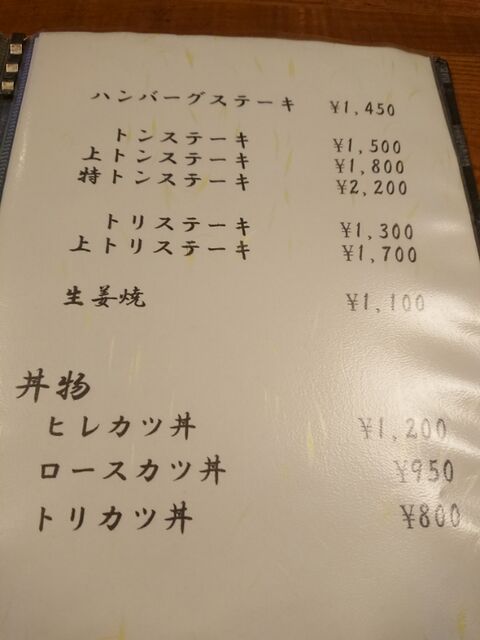 ハンバーグステーキ ¥1,450
トンステーキ ¥1,500
上トンステーキ ¥1,800
特トンステーキ ¥2,200
トリステーキ ¥1,300
上トリステーキ ¥1,700
生姜焼 ¥1,100
丼物
ヒレカツ丼 ¥1,200
ロースカツ丼 ¥950
トリカツ丼 ¥800